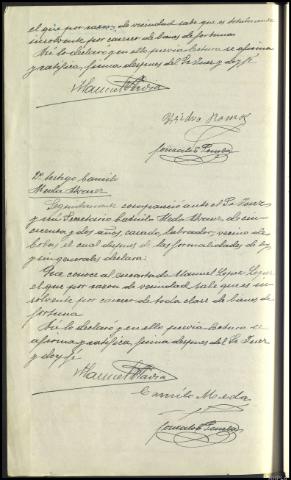 el que por razon de vecindad sabe que es totalmente
insolvente por carecer de bienes de fortuna
Así lo declaró y en ello previa lectura se afirma
y ratifica, firma despues del Sr Juez y doy fé.
Manuel
Isidro Ramos
Gonzalo
D. testigo Camilo
Meda Alvarez
Seguidamente compareció ante el Sr Juez
y mi Secretario Camilo Meda Alvarez de cin-
cuenta y dos años, casado, labrador, vecino de
el cual despues de las formalidades de ley
y sin generales declara:
Que conoce al encartado Manuel Lopez Lopez
el que por razon de vecindad sabe que es in-
solvente por carecer de toda clase de bienes de
fortuna
Así lo declaró y en ello previa lectura se
afirma y ratifica, firma despues del Sr Juez
y doy fé
Manuel
Camilo Meda
Gonzalo